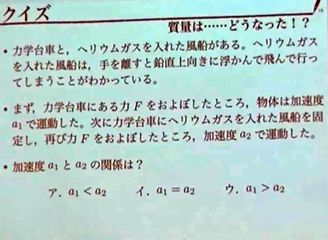 クイズ
質量は……どうなった！？
• 力学台車と、ヘリウムガスを入れた風船がある。ヘリウム
ガスを入れた風船は、手を離すと鉛直上向きに浮かんで飛んで行っ
てしまうことがわかっている。
• まず、力学台車にある力 F をおよぼしたところ、物体は加速度
a₁ で運動した。次に力学台車にヘリウムガスを入れた風船を固
定し、再び力 F をおよぼしたところ、加速度 a₂ で運動した。
• 加速度 a₁ と a₂ の関係は？
ア．a₁ < a₂ イ．a₁ = a₂ ウ．a₁ > a₂